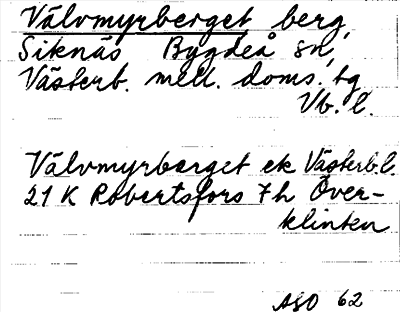 Välvmyrberget berg,
Siknäs Bygdeå sn,
Västerb. mell. doms. tg
Vb. l.
Välvmyrberget ek Västerb. l.
21 K Robertsfors 7h Över-
klinten
ASO 62